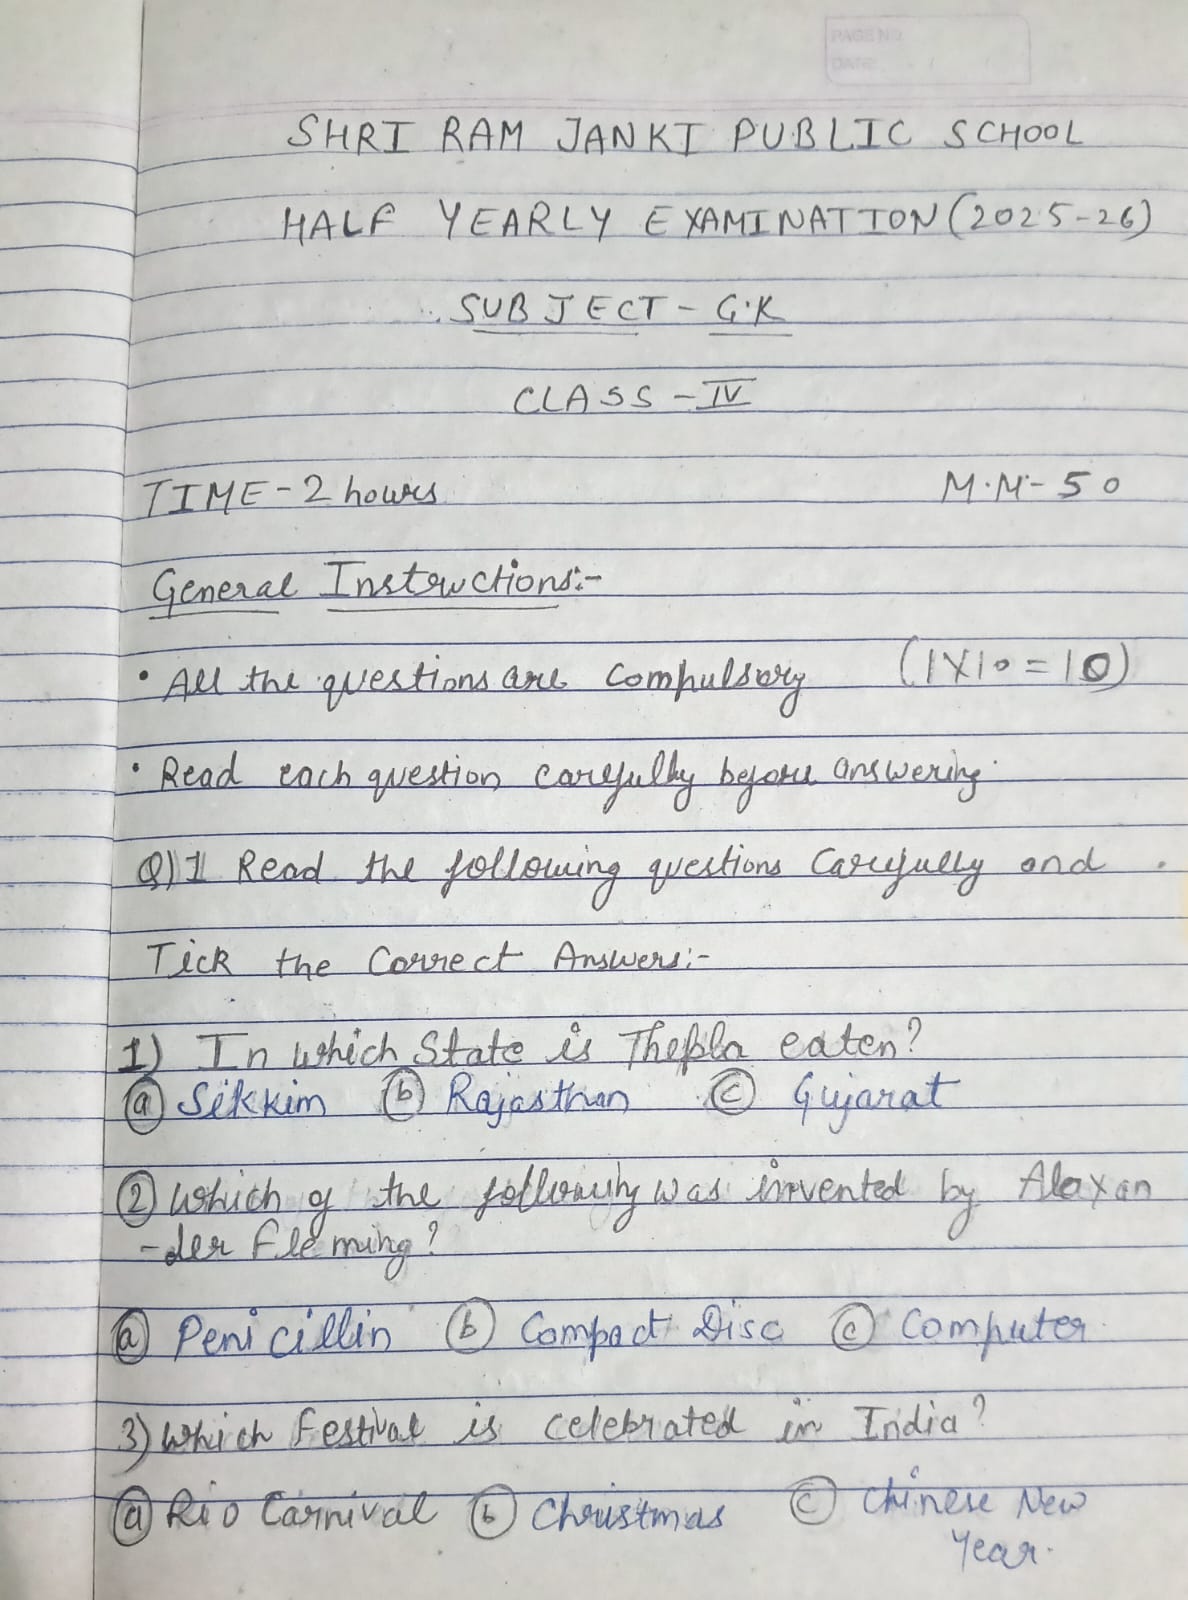 PAGE NO.
DATE:
SHRI RAM JANKI PUBLIC SCHOOL
HALF YEARLY EXAMINATION (2025-26)
SUBJECT - G.K
CLASS - IV
TIME - 2 hours M.M - 50
General Instructions:-
• All the questions are Compulsory (1X10=10)
• Read each question carefully before answering.
Q)1 Read the following questions Carefully and
Tick the Correct Answers:-
1) In which State is Thepla eaten?
(a) Sikkim (b) Rajasthan (c) Gujarat
(2) Which of the following was invented by Alaxan
-der Fleming?
(a) Penicillin (b) Compact Disc (c) Computer
3) Which Festival is Celebrated in India?
(a) Rio Carnival (b) Christmas (c) Chinese New
Year.